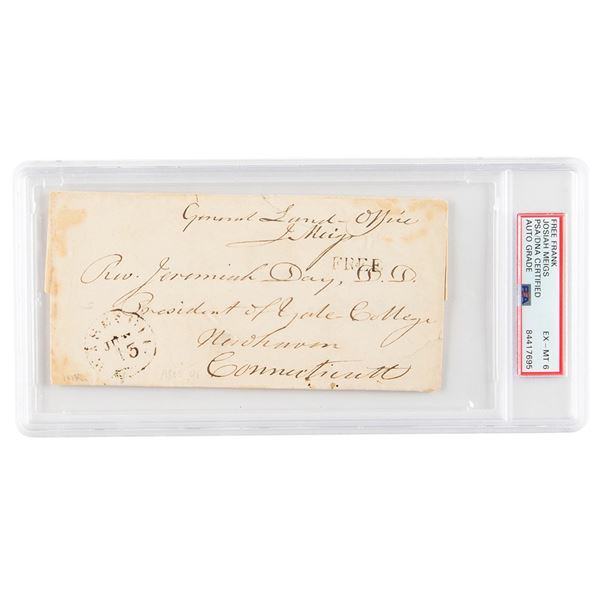 General Land-Office
J Meigs
FREE
Rev. Jeremiah Day, D.D.
President of Yale College
Newhaven
Connecticutt
15
FREE FRANK
JOSIAH MEIGS
PSA/DNA CERTIFIED
AUTO GRADE
EX - MT 6
84417695
PSA